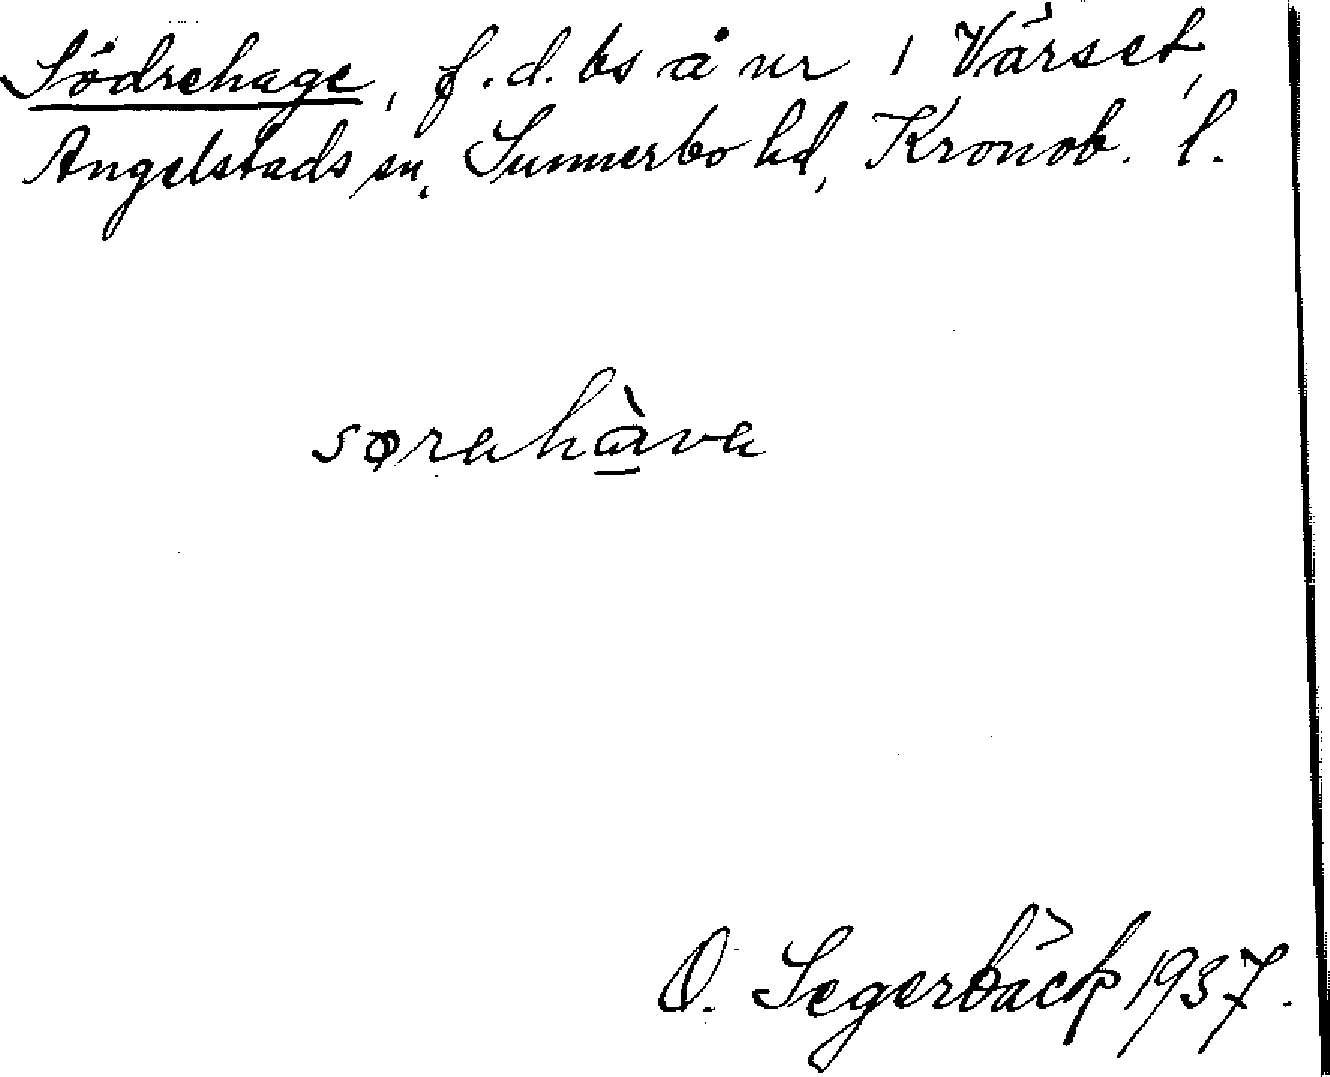 Södrehage, f.d. bs å nr 1 Värset,
Angelstads sn, Sunnerbo hd, Kronob. l.
sørahàva
O. Segerbäck 1937.